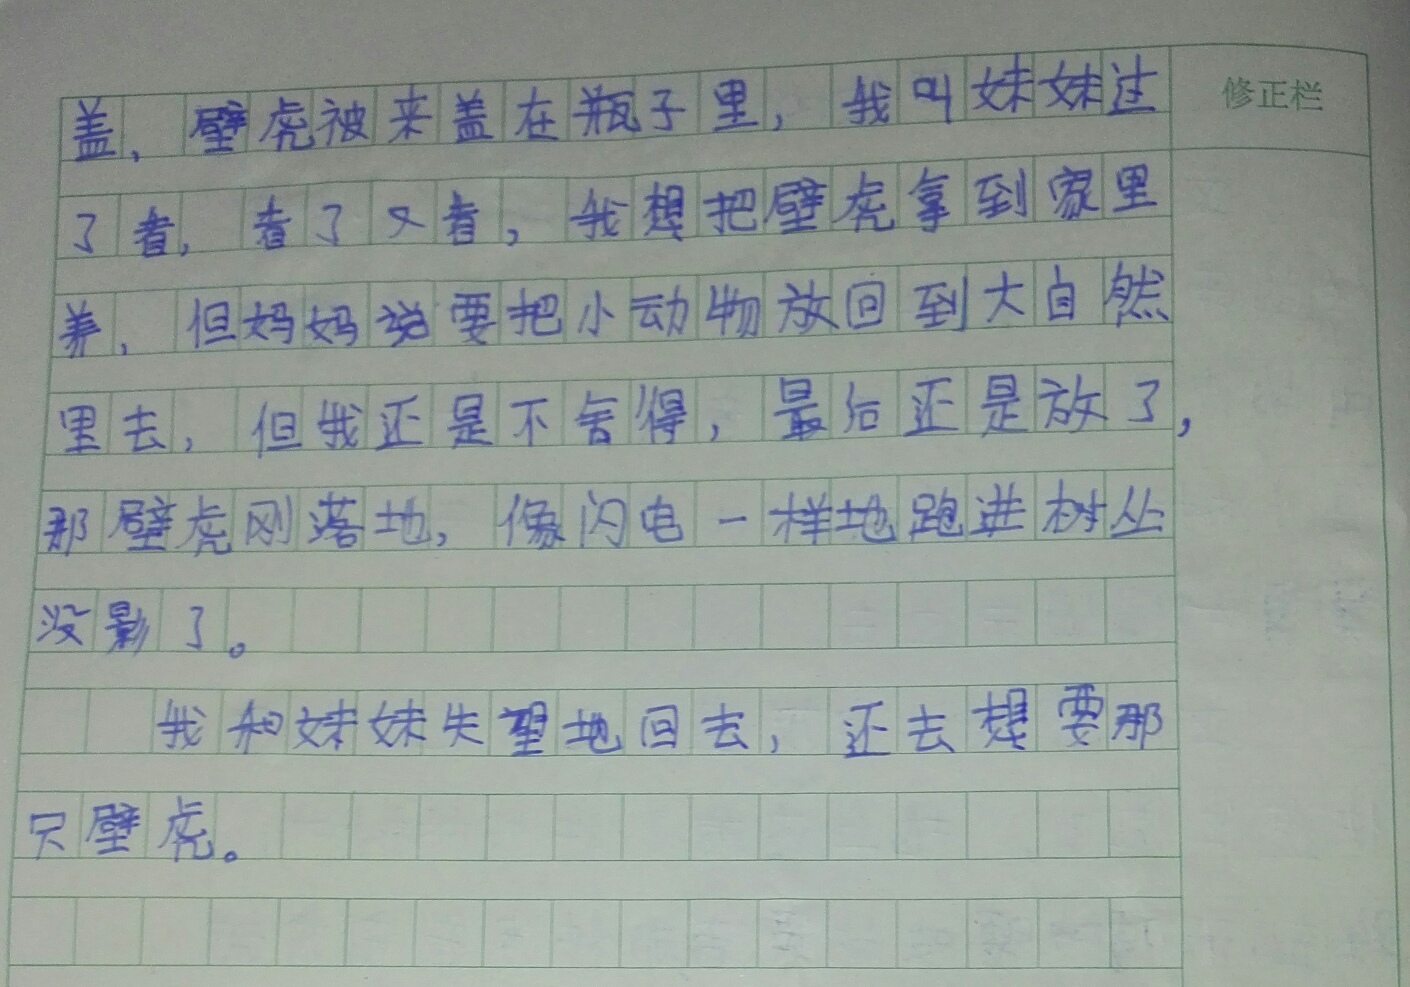 修正栏
盖，壁虎被来盖在瓶子里，我叫妹妹过
了看，看了又看，我想把壁虎拿到家里
养，但妈妈说要把小动物放回到大自然
里去，但我还是不舍得，最后还是放了，
那壁虎刚落地，像闪电一样地跑进树丛
没影了。
我和妹妹失望地回去，还去想要那
只壁虎。